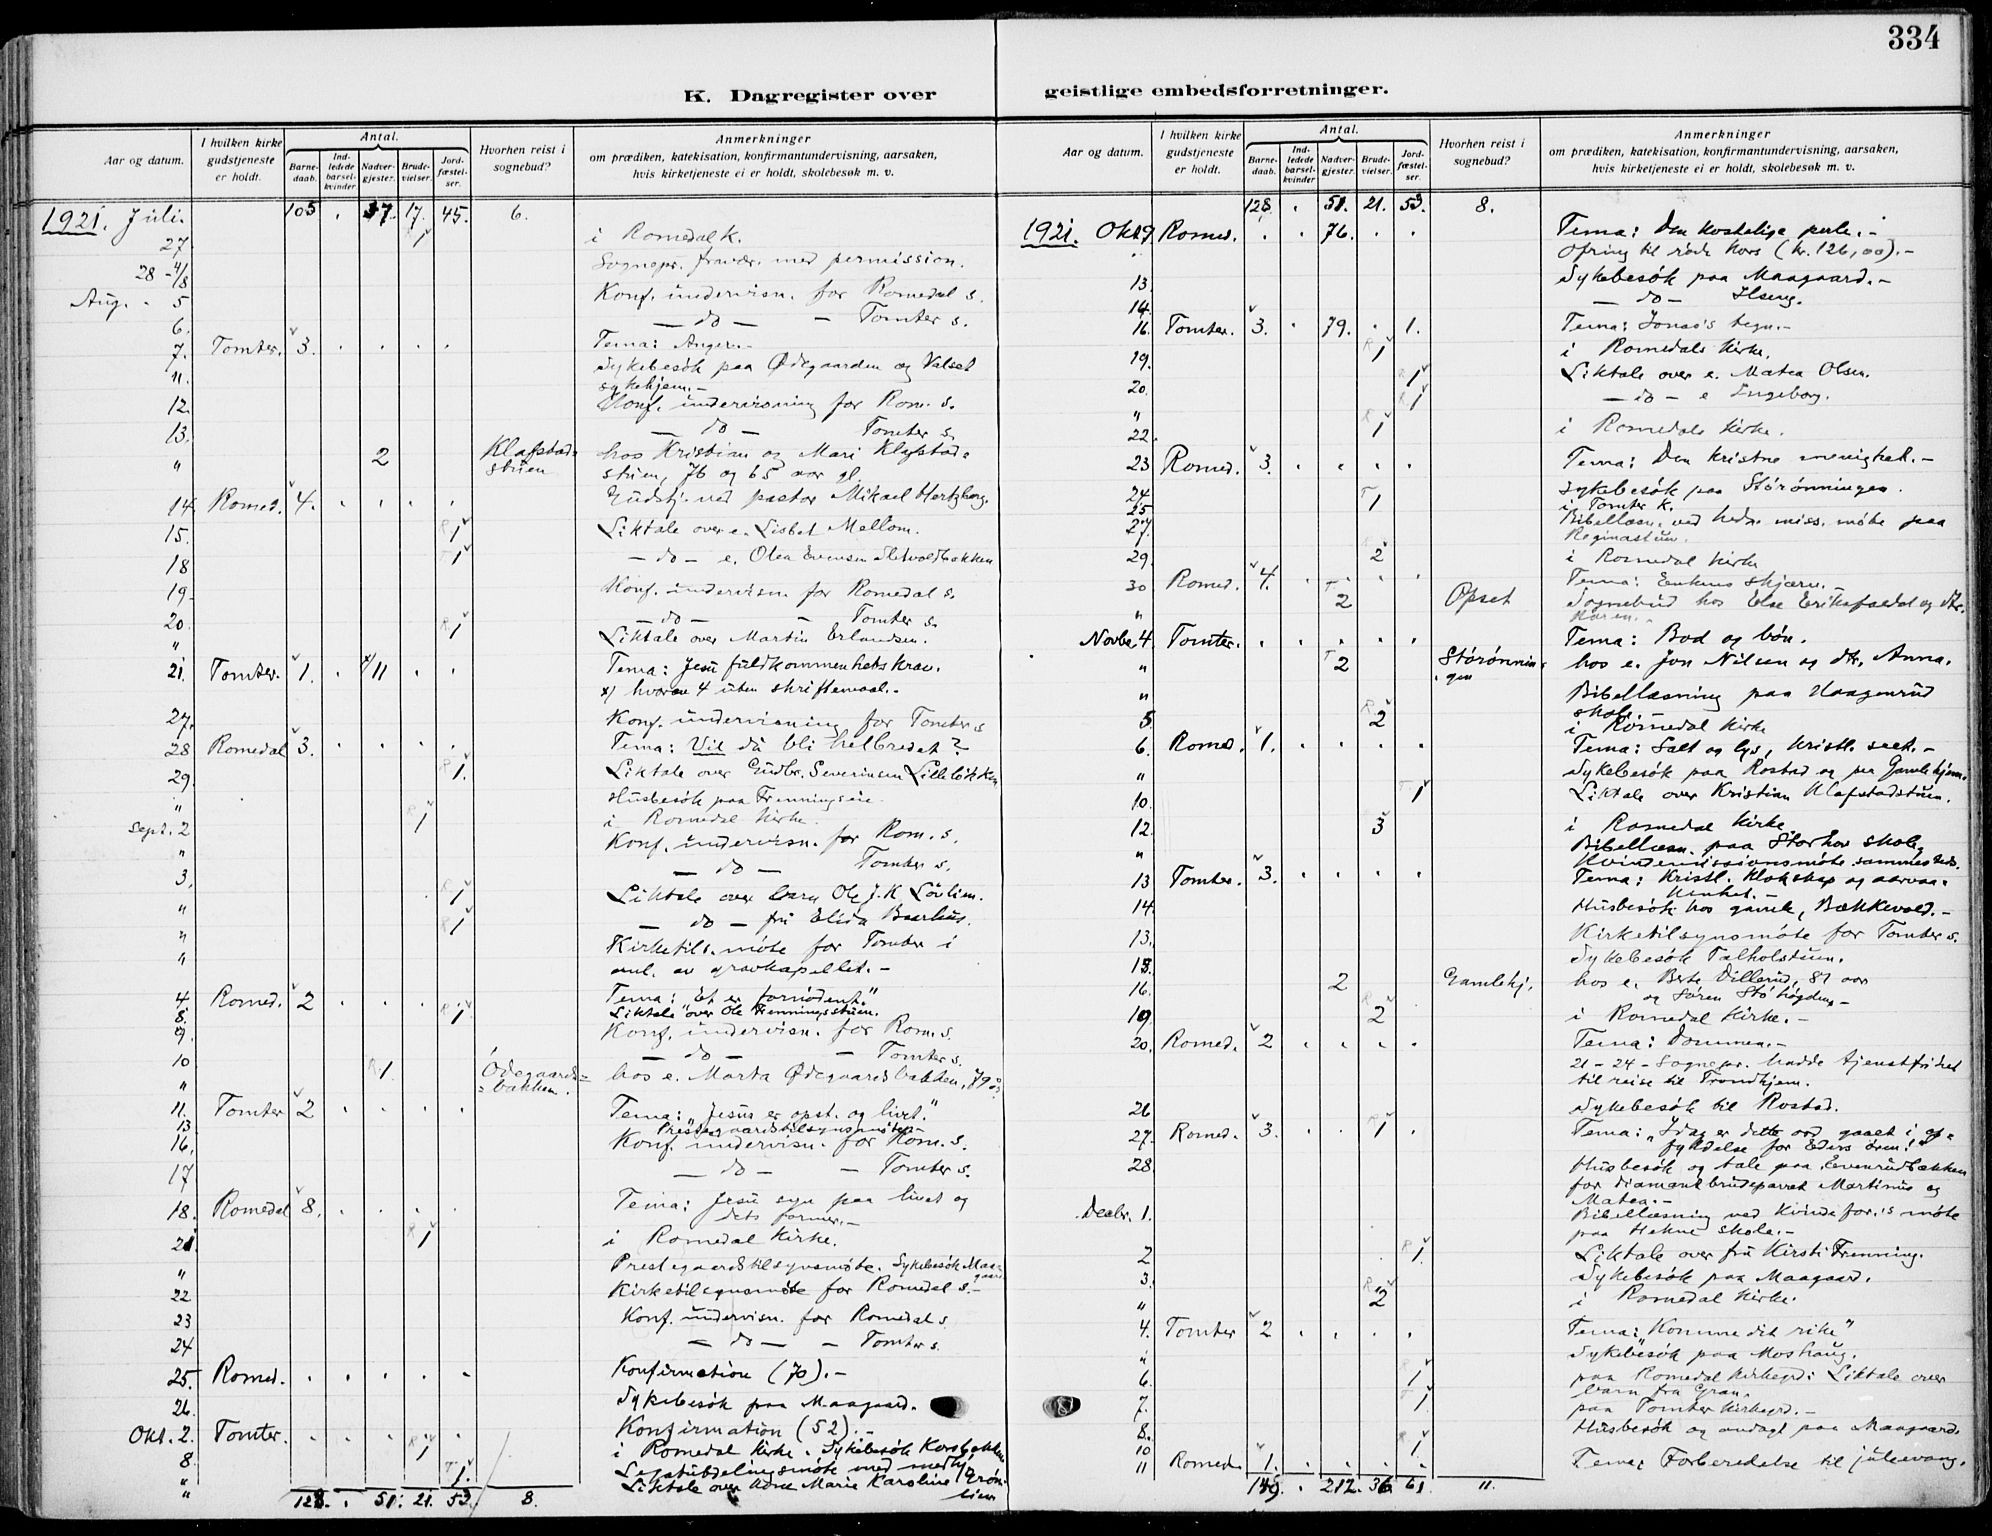 334
K. Dagregister over geistlige embedsforretninger.
Aar og datum.
I hvilken kirke gudstjeneste er holdt.
Antal.
Barnedaab.
Indledede barselkvinder
Nadvergjester.
Brudevielser.
Jordfæstelser.
Hvorhen reist i sognebud?
Anmerkninger
om prædiken, katekisation, konfirmantundervisning, aarsaken,
hvis kirketjeneste ei er holdt, skolebesøk m. v.
1921. Juli. 105 . 37. 17. 45. 6.
27 1 i Romedal k.
28 - 4/8 Sognepr. fravær. med permission.
Aug. - 5 Konf. undervisn. for Romedal s.
6. — do — - Tomter s.
7. Tomter. 3. . . . . Tema: Anger.-
11. Sykebesök paa Ødegaarden og Valset
sykehjem.-
12. Konf. undervisning for Rom. s.
13. — do — Tomter s.
" 2 Klafstadstuen hos Kristian og Mari Klafstad-
stuen, 76 og 65 aar gl.
14. Romed. 4. . . . . Gudstj. ved pastor Mikael Hertzberg.
15. R 1 Liktale over e. Lisbet Mellom.
18 T 1 — do — e. Olea Evensen
19. Konf. undervisn. for Romedal s.
20. — do — - Tomter s.
" R 1 Liktale over Martin Erlandsen.
21. Tomter. 1. . x/11 . . Tema: Jesu fuldkommenhets krav.
x) hvorav 4 uten skriftemaal.-
27. Konf. undervisning for Tomter s
28 Romedal 3. . . . . Tema: Vil du bli helbredet?
29. R 1. Liktale over Gudbr. Severinsen Lillebækken
" Husbesök paa Frenningseie.
Sept. 2 R 1 i Romedal kirke.
" Konf. undervisn. for Rom. s.
3. — do — Tomter s.
" R 1 Liktale over barn Ole J. K. Lövlien.
" R 1 — do — fru Elida Baarhus.
" Kirketils. möte for Tomter i
anl. av gravkapellet.-
4. Romed. 2 . . . . Tema: "Et er fornødent."
8. R 1 Liktale over Ole Frenningsstuen.
9. Konf. undervisn. for Rom. s.
10 — do — - Tomter s.
" R 1. Ödegaardsbakken. hos e. Marta Ødegaardsbakken, 79
11. Tomter 2 . . . . Tema: "Jesus er opst. og livet."
13 Prestegaardstilsynsmöte.-
16. Konf. undervisn. for Rom. s.
17 — do — - Tomter s.
18. Romedal 8. . . . . Tema: Jesu syn paa livet og
dets former.-
21 R 1 i Romedal kirke.
" Prestegaardstilsynsmöte. Sykebesök Maagaard
22 Kirketilsynsmöte for Romedal s.-
23 Konf. undervisn. for Romedal s.
24 — do — - Tomter s.
25. Romed. . . . . . Konfirmation (70).-
26. Sykebesök paa Maagaard.
Okt. 2. Tomter. . . . . . Konfirmation (52).-
8. R 1 i Romedal kirke. Sykebesök
T 1. Legatutdelingsmöte med
" Liktale over Marie Karoline Grönlien
128. . 51. 21. 53. 8.
Aar og datum.
I hvilken kirke gudstjeneste er holdt.
Antal.
Barnedaab.
Indledede barselkvinder
Nadvergjester.
Brudevielser.
Jordfæstelser.
Hvorhen reist i sognebud?
Anmerkninger
om prædiken, katekisation, konfirmantundervisning, aarsaken,
hvis kirketjeneste ei er holdt, skolebesøk m. v.
128. . 51. 21. 53. 8.
1921. Okt. 9. Romed. . . 76. . . Tema: Den kostelige perle.-
Ofring til røde kors (kr. 126,00).-
13. Sykebesök paa Maagaard.-
14. — do — Ilseng.
16. Tomter. 3. . 79. . 1. Tema: Jonas's tegn.-
19. R 1 i Romedals kirke.
20. R 1 Liktale over e. Matea Olsen.
" R 1 — do — e Ingeborg.
22. R 1 i Romedals kirke.
23 Romed. 3. . . . . Tema: Den kristne menighet.-
24 Sykebesök paa Störönningen.
25 T 1 i Tomter k.
27. Bibellæsn. ved hedn. miss. möte paa
Reginastuen.
29. 2 i Romedal kirke
30 Romed. 4. . . . . Tema: Enkens skjærv.-
" T 2 Opset Sognebud hos Else og dtr.
Karen.
Novbr. 4. Tomter. . . . . . Tema: Bod og bön.
" T 2 Störönningen hos e. Jon Nilsen og dtr. Anna.
" Bibellæsning paa Haagenrud
skole.
5. R 2 i Romedal kirke
6. Romed. 1. . . . . Tema: Salt og lys, kristl. sælt.-
" Sykebesök paa Rostad og paa Gamlehjem.
10. T 1 Liktale over Kristian Klafstadstuen.
12. 3 i Romedal kirke
" Bibellæsn. paa Storhov skole,
Kvindemissionsmöte sammesteds.
13 Tomter. 3. . . . . Tema: Kristl. klokskap og aarvaa-
kenhet.-
14. Husbesök hos gamle, Bækkevold.-
13. Kirketilsynsmöte for Tomter s.
15. Sykebesök Talholstuen.
16. 2 Gamlehj. hos e. Berte Dillerud, 81 aar
og Søren
19. R 2 i Romedal kirke.-
20. Romed. 2 . . . . Tema: Dommen.-
21 - 24 - Sognepr. hadde tjenestfrihet
til reise til Trondhjem.
26 Sykebesök til Rostad.
27. Romed. 3. . . R 1 . Tema: "Idag er dette ord gaaet i op-
fyldelse for Eders ören!"
28. Husbesök og tale paa Evenrudbækken
for diamantbrudeparret Martinus og
Matea.-
Decbr. 1. Bibellæsning ved kvindefor.'s möte
paa Hekne skole.-
2 R 1 Liktale over fru Kirsti Frenning.
3. Sykebesök paa Maagaard.
" R 2 i Romedal kirke.
4. Tomter 2 . . . . Tema: "Komme dit rike"
" Sykebesök paa Moshaug.
6. R 1 paa Romedal kirkegrd: Liktale over
barn fra Gran.
7. T 1 paa Tomter kirkegrd.-
8. Husbesök og andagt paa Maagaard.
10 R 1
11 Romed. 1. . . . . Tema: Forberedelse til julevang.
149. . 212. 36. 61. 11.